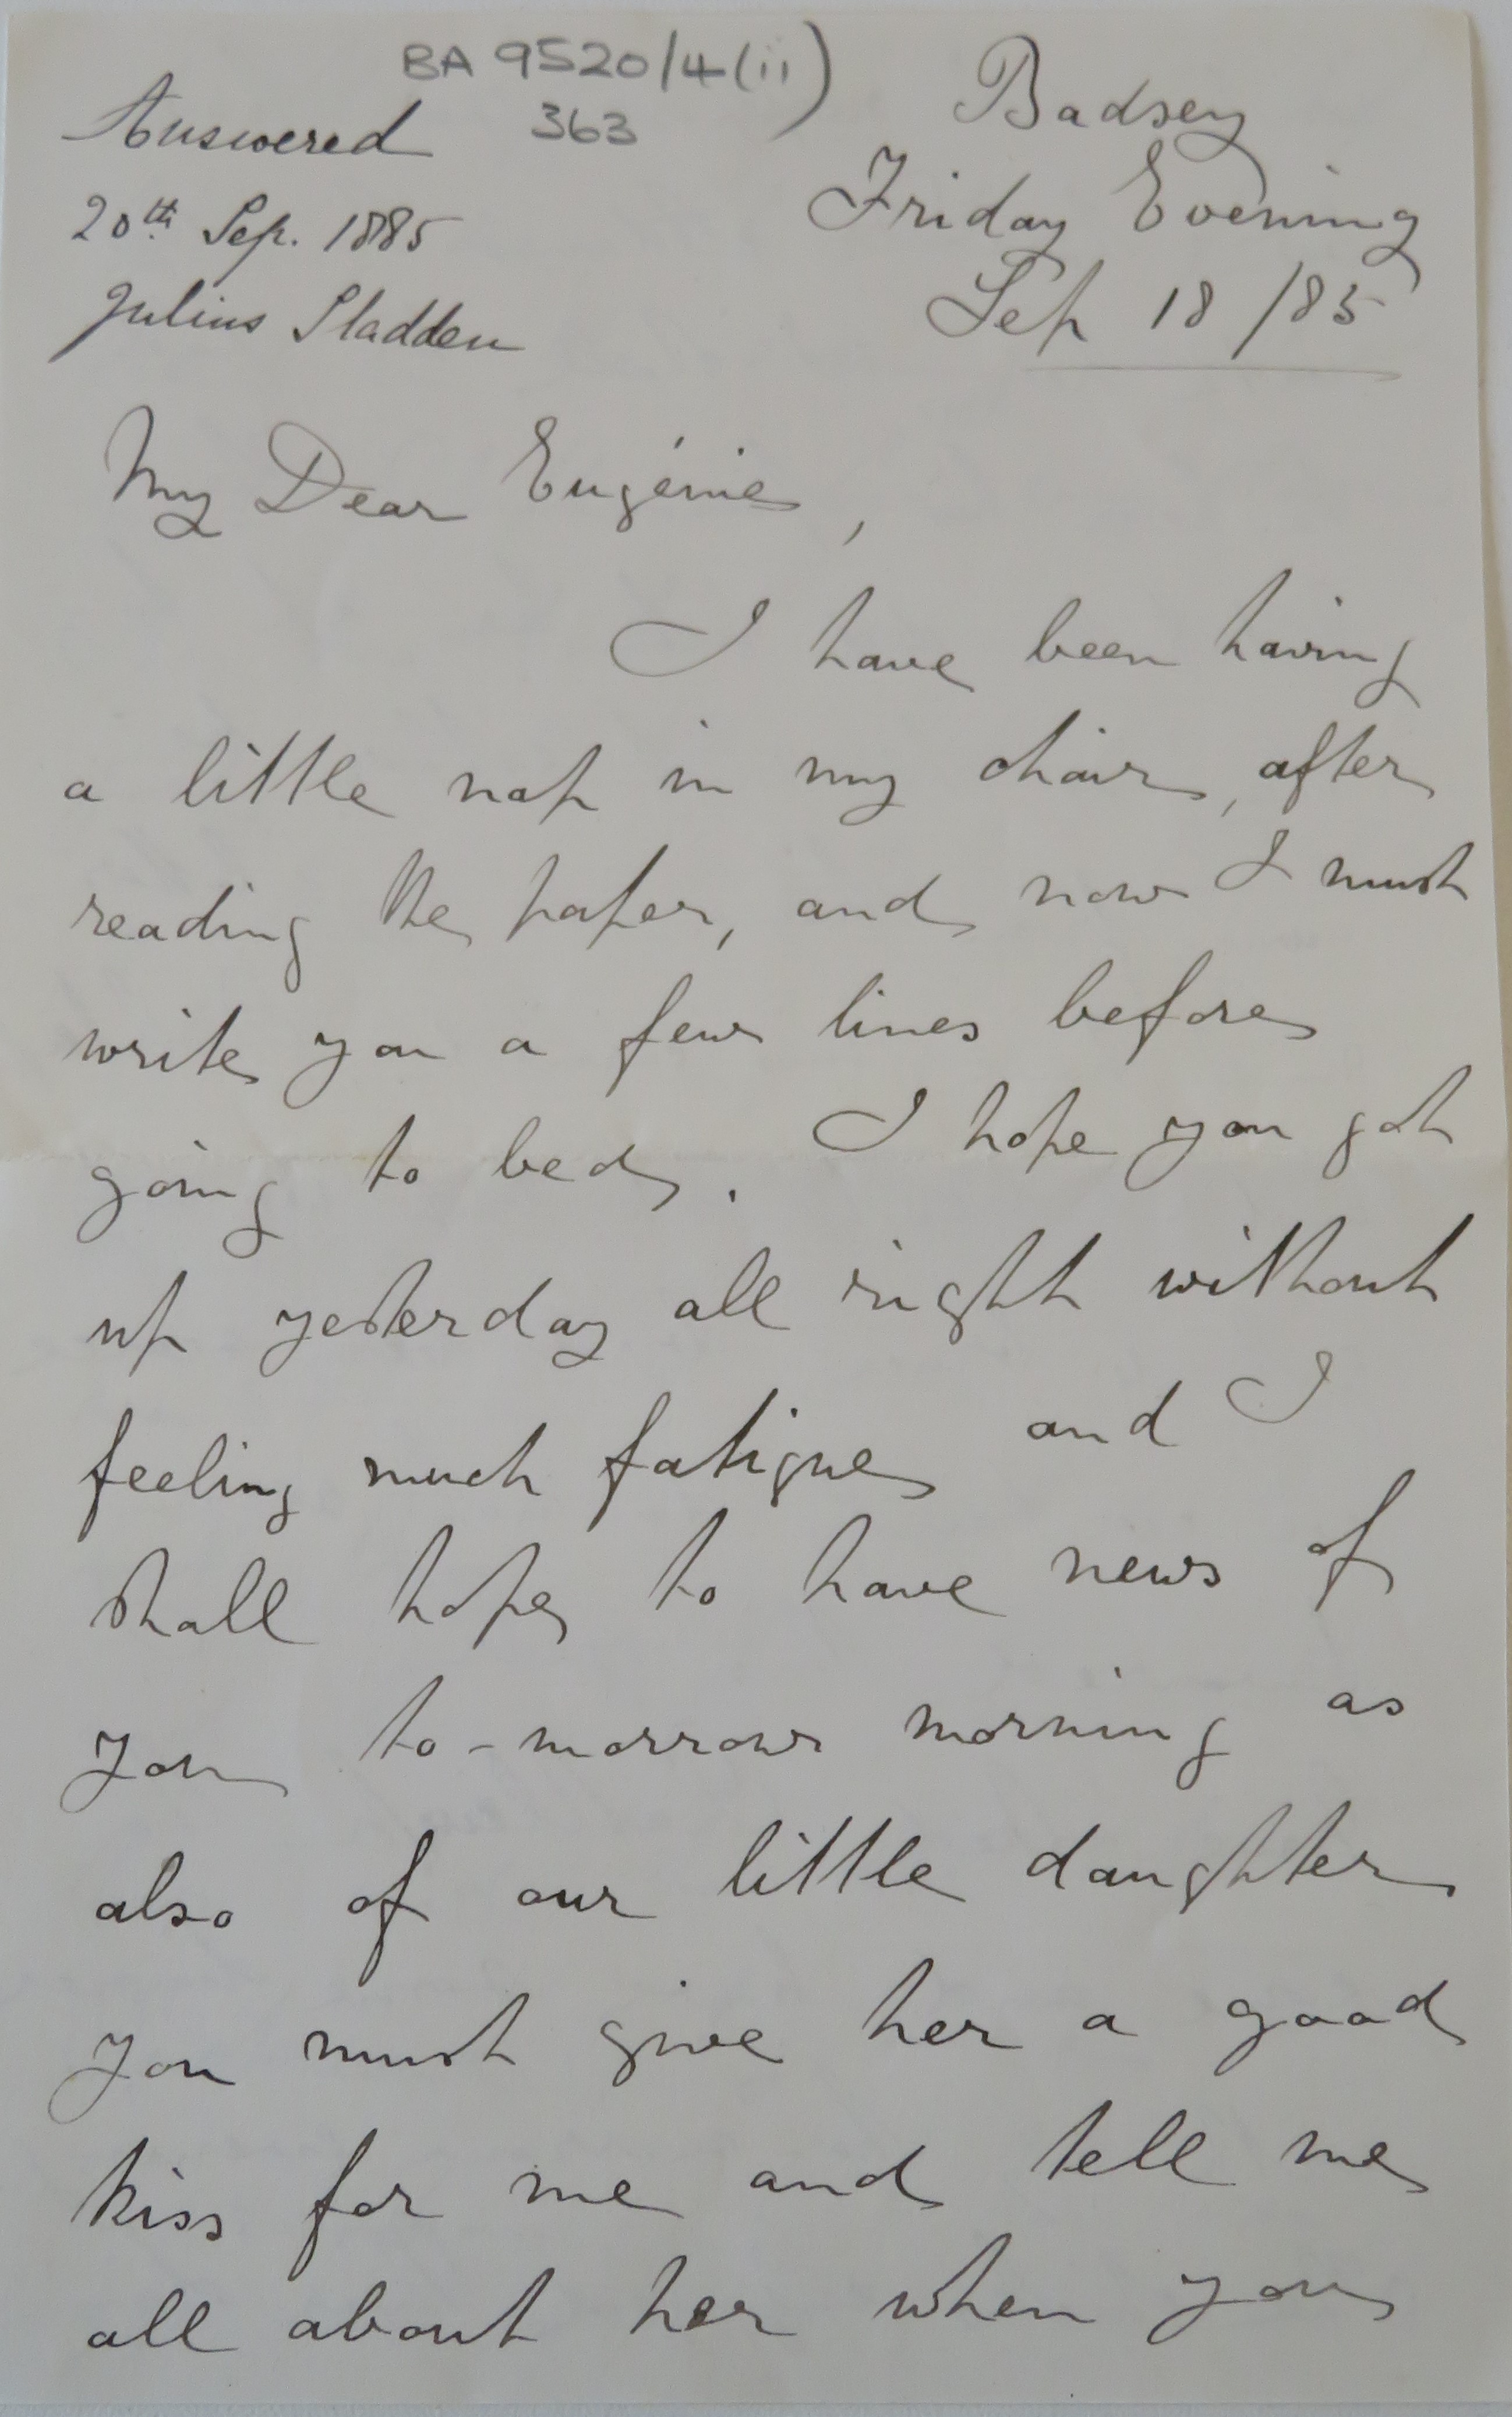 BA 9520/4(ii)
363
Answered
20th Sep. 1885
Julius Sladden
Badsey
Friday Evening
Sep 18 /85
My Dear Eugénie,
I have been having
a little nap in my chair, after
reading the paper, and now I must
write you a few lines before
going to bed. I hope you got
up yesterday all right without
feeling much fatigue and I
shall hope to have news of
you to-morrow morning as
also of our little daughter
you must give her a good
kiss for me and tell me
all about her when you